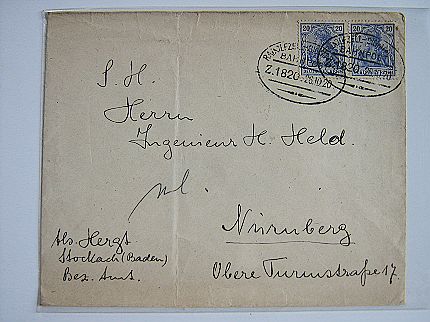 20 20 20 20
BAHNPOST
Z.1820 28.10.20
S. H.
Herrn
Ingenieur H. Held.
Nürnberg
Obere Turmstraße 17.
Abs. Hergt
Stockach (Baden)
Bez. Amt.